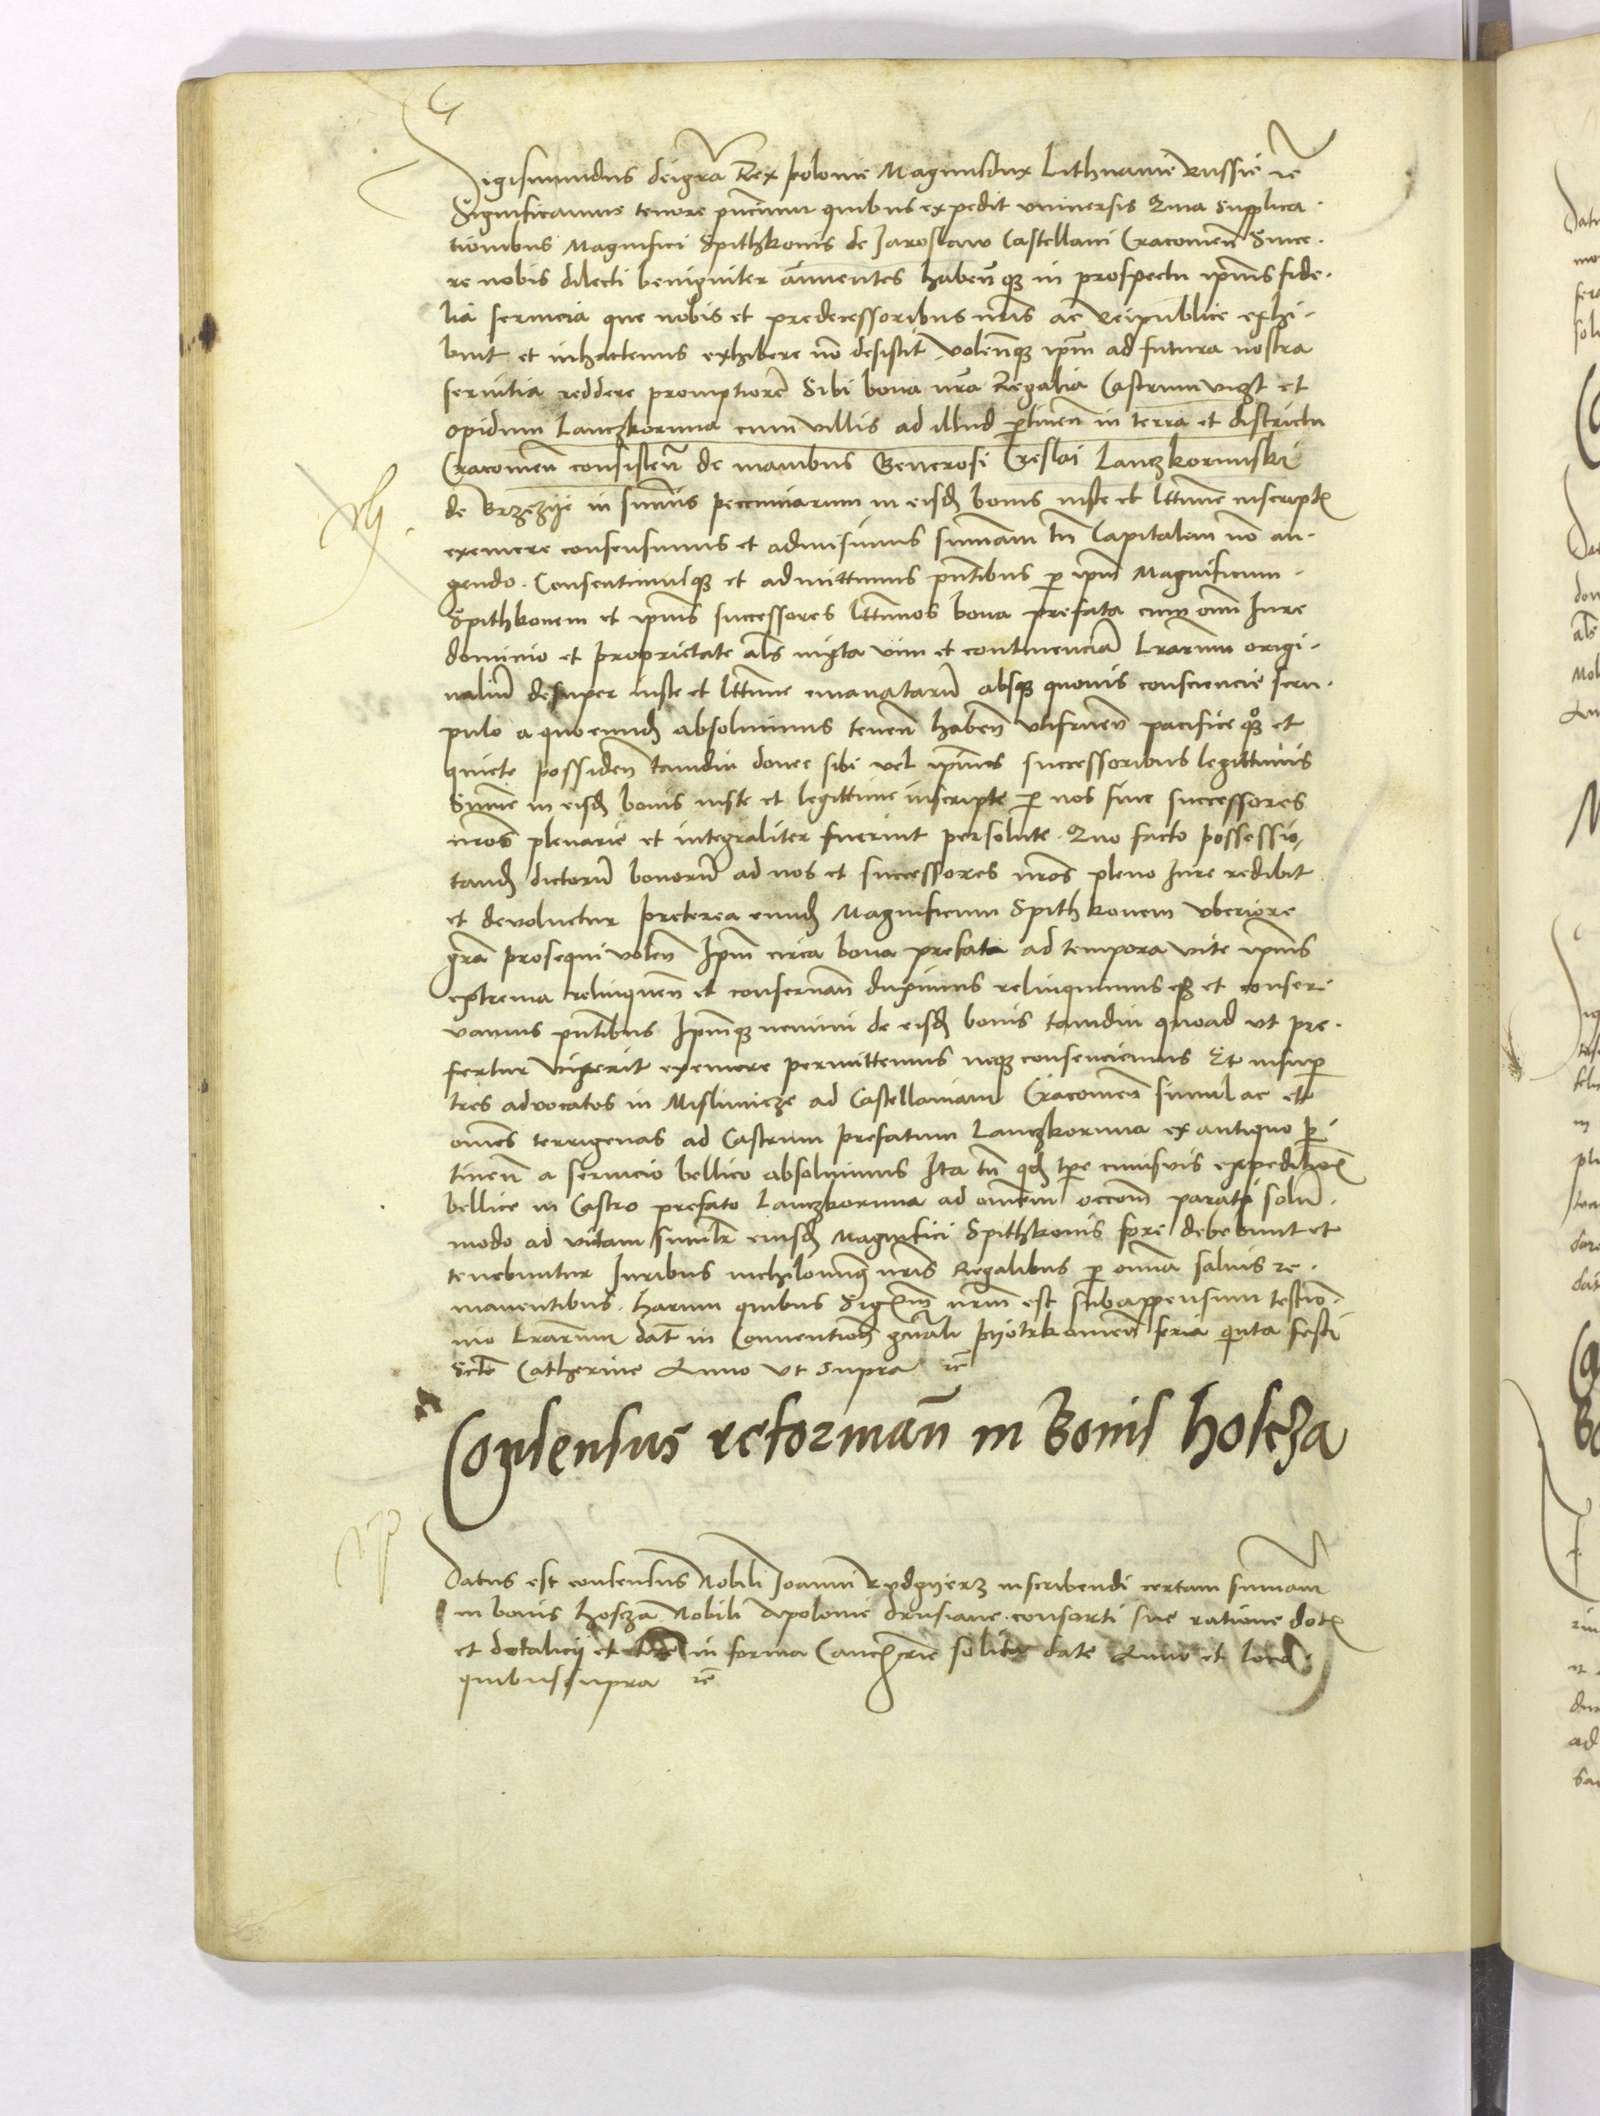 Sigismundus dei gra Rex Polonie Magnus dux Lithuanie Russie rc
Significamus tenore pncium quibus expedit universis Quia supplica
tionibus Magnifici Spithkonis de Jaroslaw Castellani Cracovien Since
re nobis dilecti benigniter annuentes habentesque in prospectu ipius fide
lia servicia que nobis et predecessoribus nris ac Reipublice exhi
buit et inhactenus exhibere no desistit volentesque ipm ad futura nostra
servitia reddere promptiore Sibi bona nra Regalia Castrum vizt et
opidum Lanczkoruna cum villis ad illud ptinen in terra et districtu
Cracovien consisten de manibus Generosi Creslai Lanczkorunski
de Brzezye in sumis pecuniarum in eisd bonis iuste et lttime inscript
exemere consensimus et admisimus sumam tn Capitalem no au
gendo. Consentimusque et admittimus pntibus p ipm Magnificum
Spithkonem et ipius successores lttimos bona prefata cum omi Jure
dominio et proprietate als iuxta vim et continencia lrarum origi
naliu desuper iuste et lttime emanataru absque quovis consciencie scru
pulo a quo eund absolvimus tenen haben utifruen pacifice qz et
quiete possiden tamdiu donec sibi vel ipius successoribus legittimis
Summe in eisd bonis iuste et legittime inscripte p nos sive successores
nros plenarie et integraliter fuerint persolute. Quo facto possessio
tand dictoru bonoru ad nos et successores nros pleno Jure redibit
et devoluetur Preterea eund Magnificum Spithkonem uberiore
gra prosequi volen Ipm circa bona prefata ad tempora vite ipius
extrema relinquen et conservan duximus relinquimusque et conser
vamus pntibus Ipmque nemini de eisd bonis tamdiu quoad ut pre
fertur vixerit exemere permittemus neque consenciemus Et insup
tres advocatos in Mislimicze ad Castellaniam Cracovien simul ac et
omes terrigenas ad Castrum prefatum Lanczkoruna ex antiquo p
tinen a servicio bellico absolvimus Ita tn qd tpe cuiusvis expedition
bellice in Castro prefato Lanczkoruna ad omem occom parati solu
modo ad vitam simulr eiusd Magnifici Spithkonis fore debebunt et
tenebuntur Juribus nichilominus nris Regalibus p omia salvis re
manentibus. Harum quibus Sigm nrm est subappensum testimo
nio lrarum dat in Conventione gnali Pyotrkovien feria quinta festi
Scte Catherine Anno ut supra rc
Consensus reforman in Bonis Hoscza
Datus est consensus Nobili Joanni Rydgyerz inscribendi certam sumam
in bonis Hoscza Nobili Apolonie Drusiane consorti sue ratione dot
et dotalicii et in forma Cancrie solita date Anno et loco
quibus supra rc